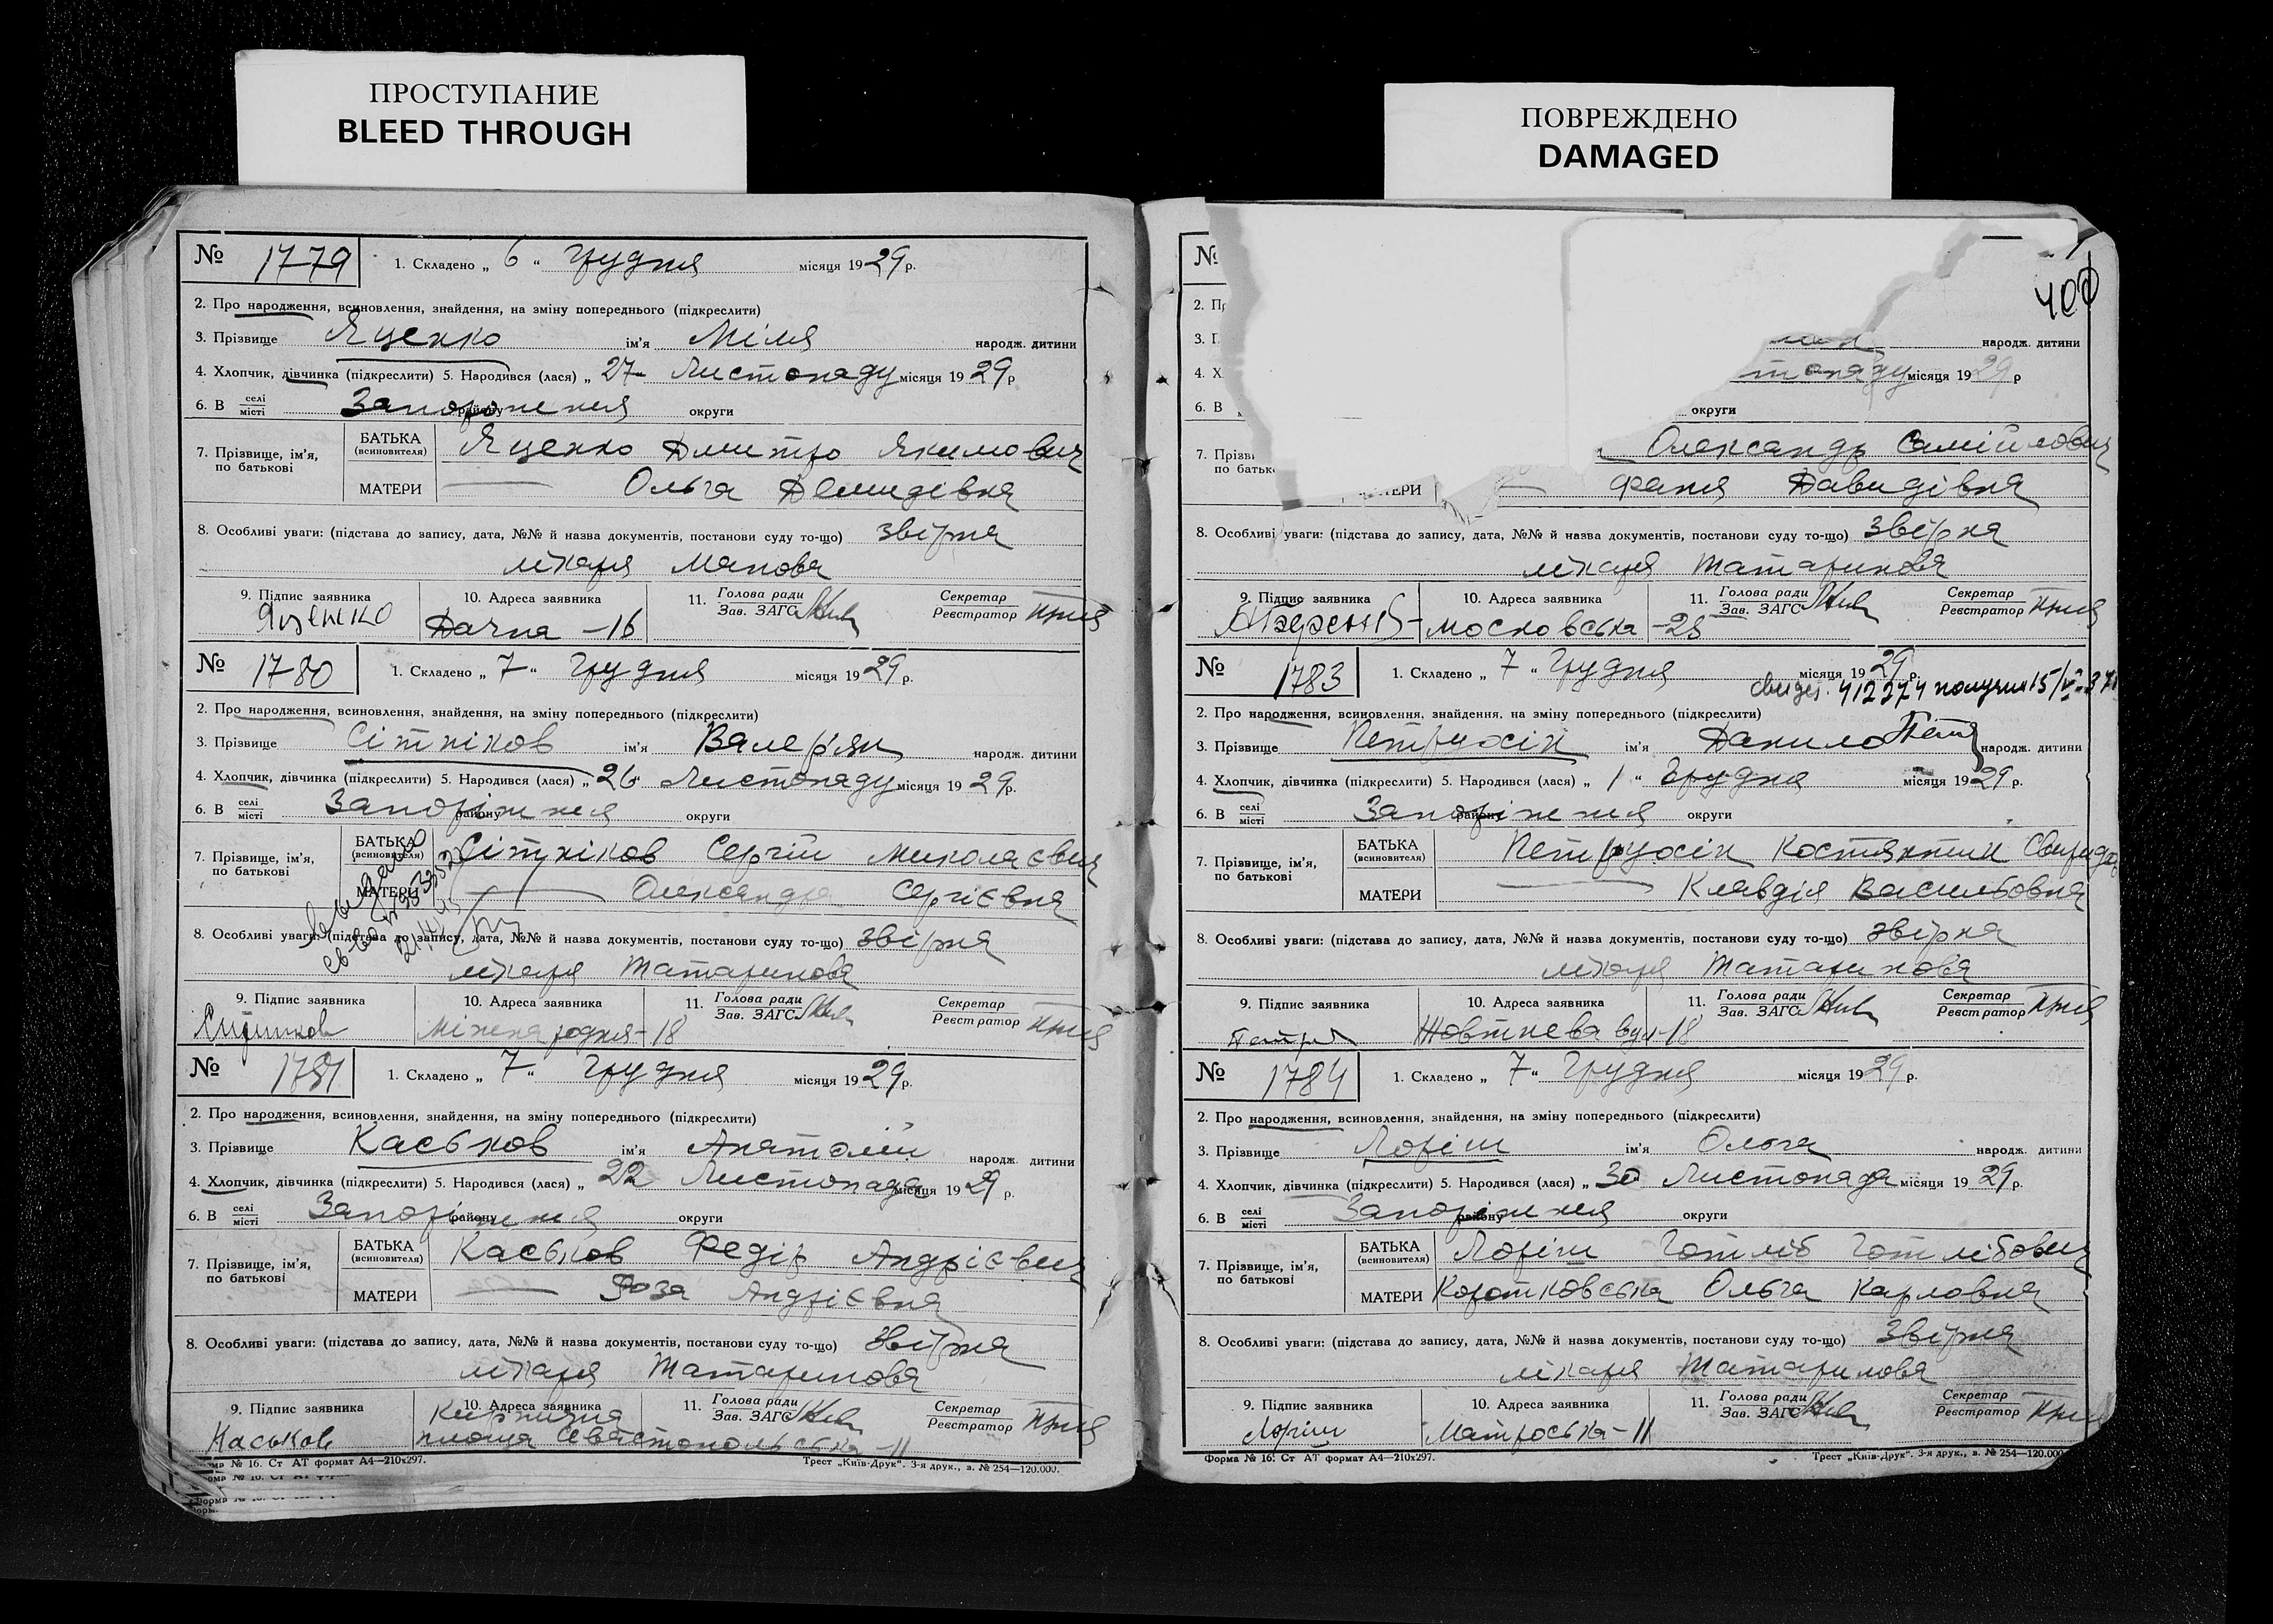 ПРОСТУПАНИЕ
BLEED THROUGH
№ 1779 1. Складено „ 6 “ Грудня місяця 1929 р.
2. Про народження, всиновлення, знайдення, на зміну попереднього (підкреслити)
3. Прізвище Яценко ім'я Міля народж. дитини
4. Хлопчик, дівчинка (підкреслити) 5. Народився (лася) „ 27 Листопаду місяця 1929 р
6. В селі місті Запоріжжя району округи
7. Прізвище, ім'я, по батькові БАТЬКА (всиновителя) Яценко Дмитро Якимович
МАТЕРИ — Ольга Демидівна
8. Особливі уваги: (підстава до запису, дата, №№ й назва документів, постанови суду то-що) звірка
лікаря Манова
9. Підпис заявника 10. Адреса заявника 11. Голова ради Зав. ЗАГС Секретар Реєстратор
Яценко Дачна -16
№ 1780 1. Складено „ 7 “ Грудня місяця 1929 р.
2. Про народження, всиновлення, знайдення, на зміну попереднього (підкреслити)
3. Прізвище Сітніков ім'я Валер'ян народж. дитини
4. Хлопчик, дівчинка (підкреслити) 5. Народився (лася) „ 26 “ Листопаду місяця 1929 р.
6. В селі місті Запоріжжя району округи
7. Прізвище, ім'я, по батькові БАТЬКА (всиновителя) Сітніков Сергій Миколаєвич
МАТЕРИ — Олександра Сергієвна
8. Особливі уваги: (підстава до запису, дата, №№ й назва документів, постанови суду то-що) звірка
лікаря Татаринова
9. Підпис заявника 10. Адреса заявника 11. Голова ради Зав. ЗАГС Секретар Реєстратор
-18
№ 1781 1. Складено „ 7 “ Грудня місяця 1929 р.
2. Про народження, всиновлення, знайдення, на зміну попереднього (підкреслити)
3. Прізвище Каськов ім'я Анатолій народж. дитини
4. Хлопчик, дівчинка (підкреслити) 5. Народився (лася) „ 22 Листопада місяця 1929 р.
6. В селі місті Запоріжжя району округи
7. Прізвище, ім'я, по батькові БАТЬКА (всиновителя) Каськов Федір Андрієвич
МАТЕРИ — Роза Андрієвна
8. Особливі уваги: (підстава до запису, дата, №№ й назва документів, постанови суду то-що) звірка
лікаря Татаринова
9. Підпис заявника 10. Адреса заявника 11. Голова ради Зав. ЗАГС Секретар Реєстратор
Каськов площа Севастопольська -11
Форма № 16. Ст АТ формат А4—210х297. Трест „Київ-Друк“. 3-я друк., з. № 254—120.000.
ПОВРЕЖДЕНО
DAMAGED
№
400
2. Пр
3. П народж. дитини
4. Х топаду місяця 1929 р
6. В округи
7. Прізви по батьк Олександр Самійлович
ТЕРИ — Фаня Давидівна
8. Особливі уваги: (підстава до запису, дата, №№ й назва документів, постанови суду то-що) Звірка
лікаря Татаринова
9. Підпис заявника 10. Адреса заявника 11. Голова ради Зав. ЗАГС Секретар Реєстратор
Московська -25
№ 1783 1. Складено „ 7 “ Грудня місяця 1929 р.
свидет. 412374 получил 15/
2. Про народження, всиновлення, знайдення, на зміну попереднього (підкреслити)
3. Прізвище Петруосік ім'я Данило Петя народж. дитини
4. Хлопчик, дівчинка (підкреслити) 5. Народився (лася) „ 1 “ Грудня місяця 1929 р.
6. В селі місті Запоріжжя району округи
7. Прізвище, ім'я, по батькові БАТЬКА (всиновителя) Петруосік Костянтин
МАТЕРИ — Клавдія Васильовна
8. Особливі уваги: (підстава до запису, дата, №№ й назва документів, постанови суду то-що) звірка
лікаря Татаринова
9. Підпис заявника 10. Адреса заявника 11. Голова ради Зав. ЗАГС Секретар Реєстратор
Жовтнева вул -18
№ 1784 1. Складено „ 7 “ Грудня місяця 1929 р.
2. Про народження, всиновлення, знайдення, на зміну попереднього (підкреслити)
3. Прізвище Лоріш ім'я Ольга народж. дитини
4. Хлопчик, дівчинка (підкреслити) 5. Народився (лася) „ 30 Листопада місяця 1929 р.
6. В селі місті Запоріжжя району округи
7. Прізвище, ім'я, по батькові БАТЬКА (всиновителя) Лоріш Готліб Готлібович
МАТЕРИ Коротковська Ольга Карловна
8. Особливі уваги: (підстава до запису, дата, №№ й назва документів, постанови суду то-що) Звірка
лікаря Татаринова
9. Підпис заявника 10. Адреса заявника 11. Голова ради Зав. ЗАГС Секретар Реєстратор
Лоріш Матроська -11
Форма № 16. Ст АТ формат А4—210х297. Трест „Київ-Друк“. 3-я друк., з. № 254—120.000